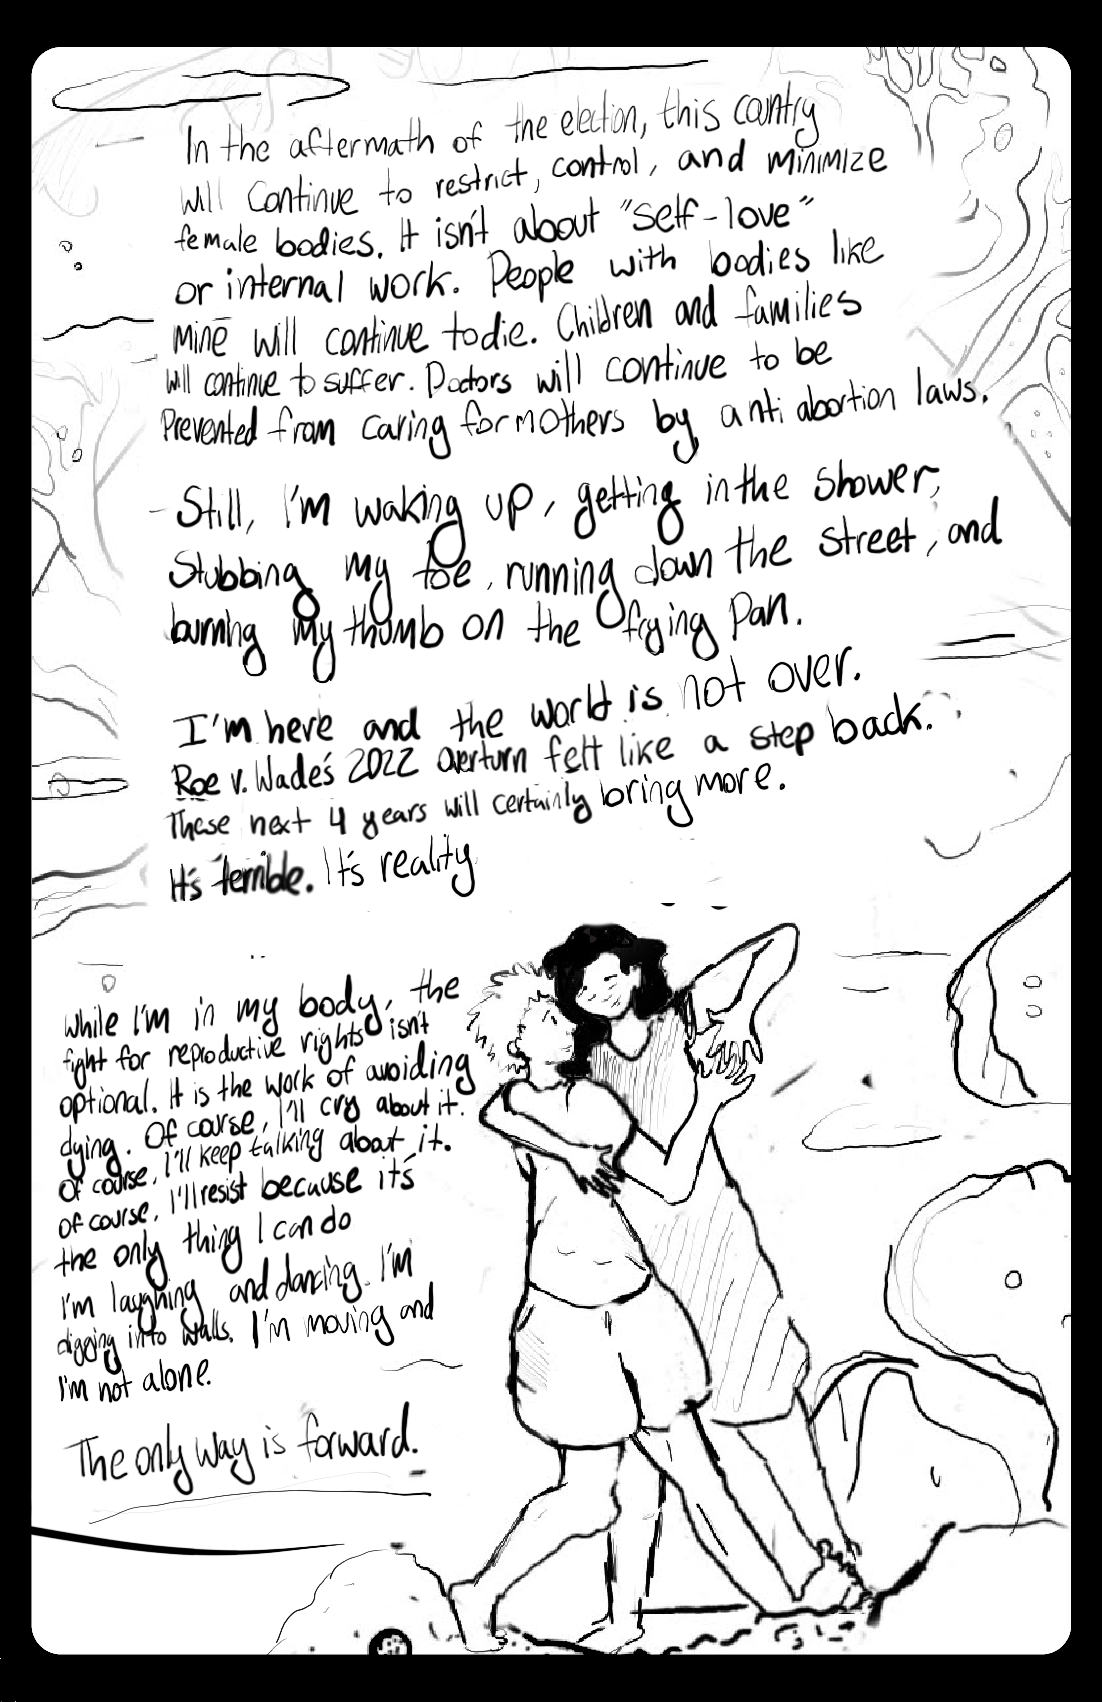 In the aftermath of the election, this country
will continue to restrict, control, and minimize
female bodies. It isn't about "self-love"
or internal work. People with bodies like
mine will continue to die. Children and families
will continue to suffer. Doctors will continue to be
Prevented from caring for mothers by anti abortion laws.
Still, I'm waking up, getting in the shower,
Stubbing my toe, running down the street, and
burning my thumb on the frying pan.
I'm here and the world is not over.
Roe v. Wade's 2022 overturn felt like a step back.
These next 4 years will certainly bring more.
It's terrible. It's reality
While I'm in my body, the
fight for reproductive rights isn't
optional. It is the work of avoiding
dying. Of course, I'll cry about it.
Of course, I'll keep talking about it.
Of course, I'll resist because it's
the only thing I can do
I'm laughing and dancing. I'm
digging into walls. I'm moving and
I'm not alone.
The only way is forward.